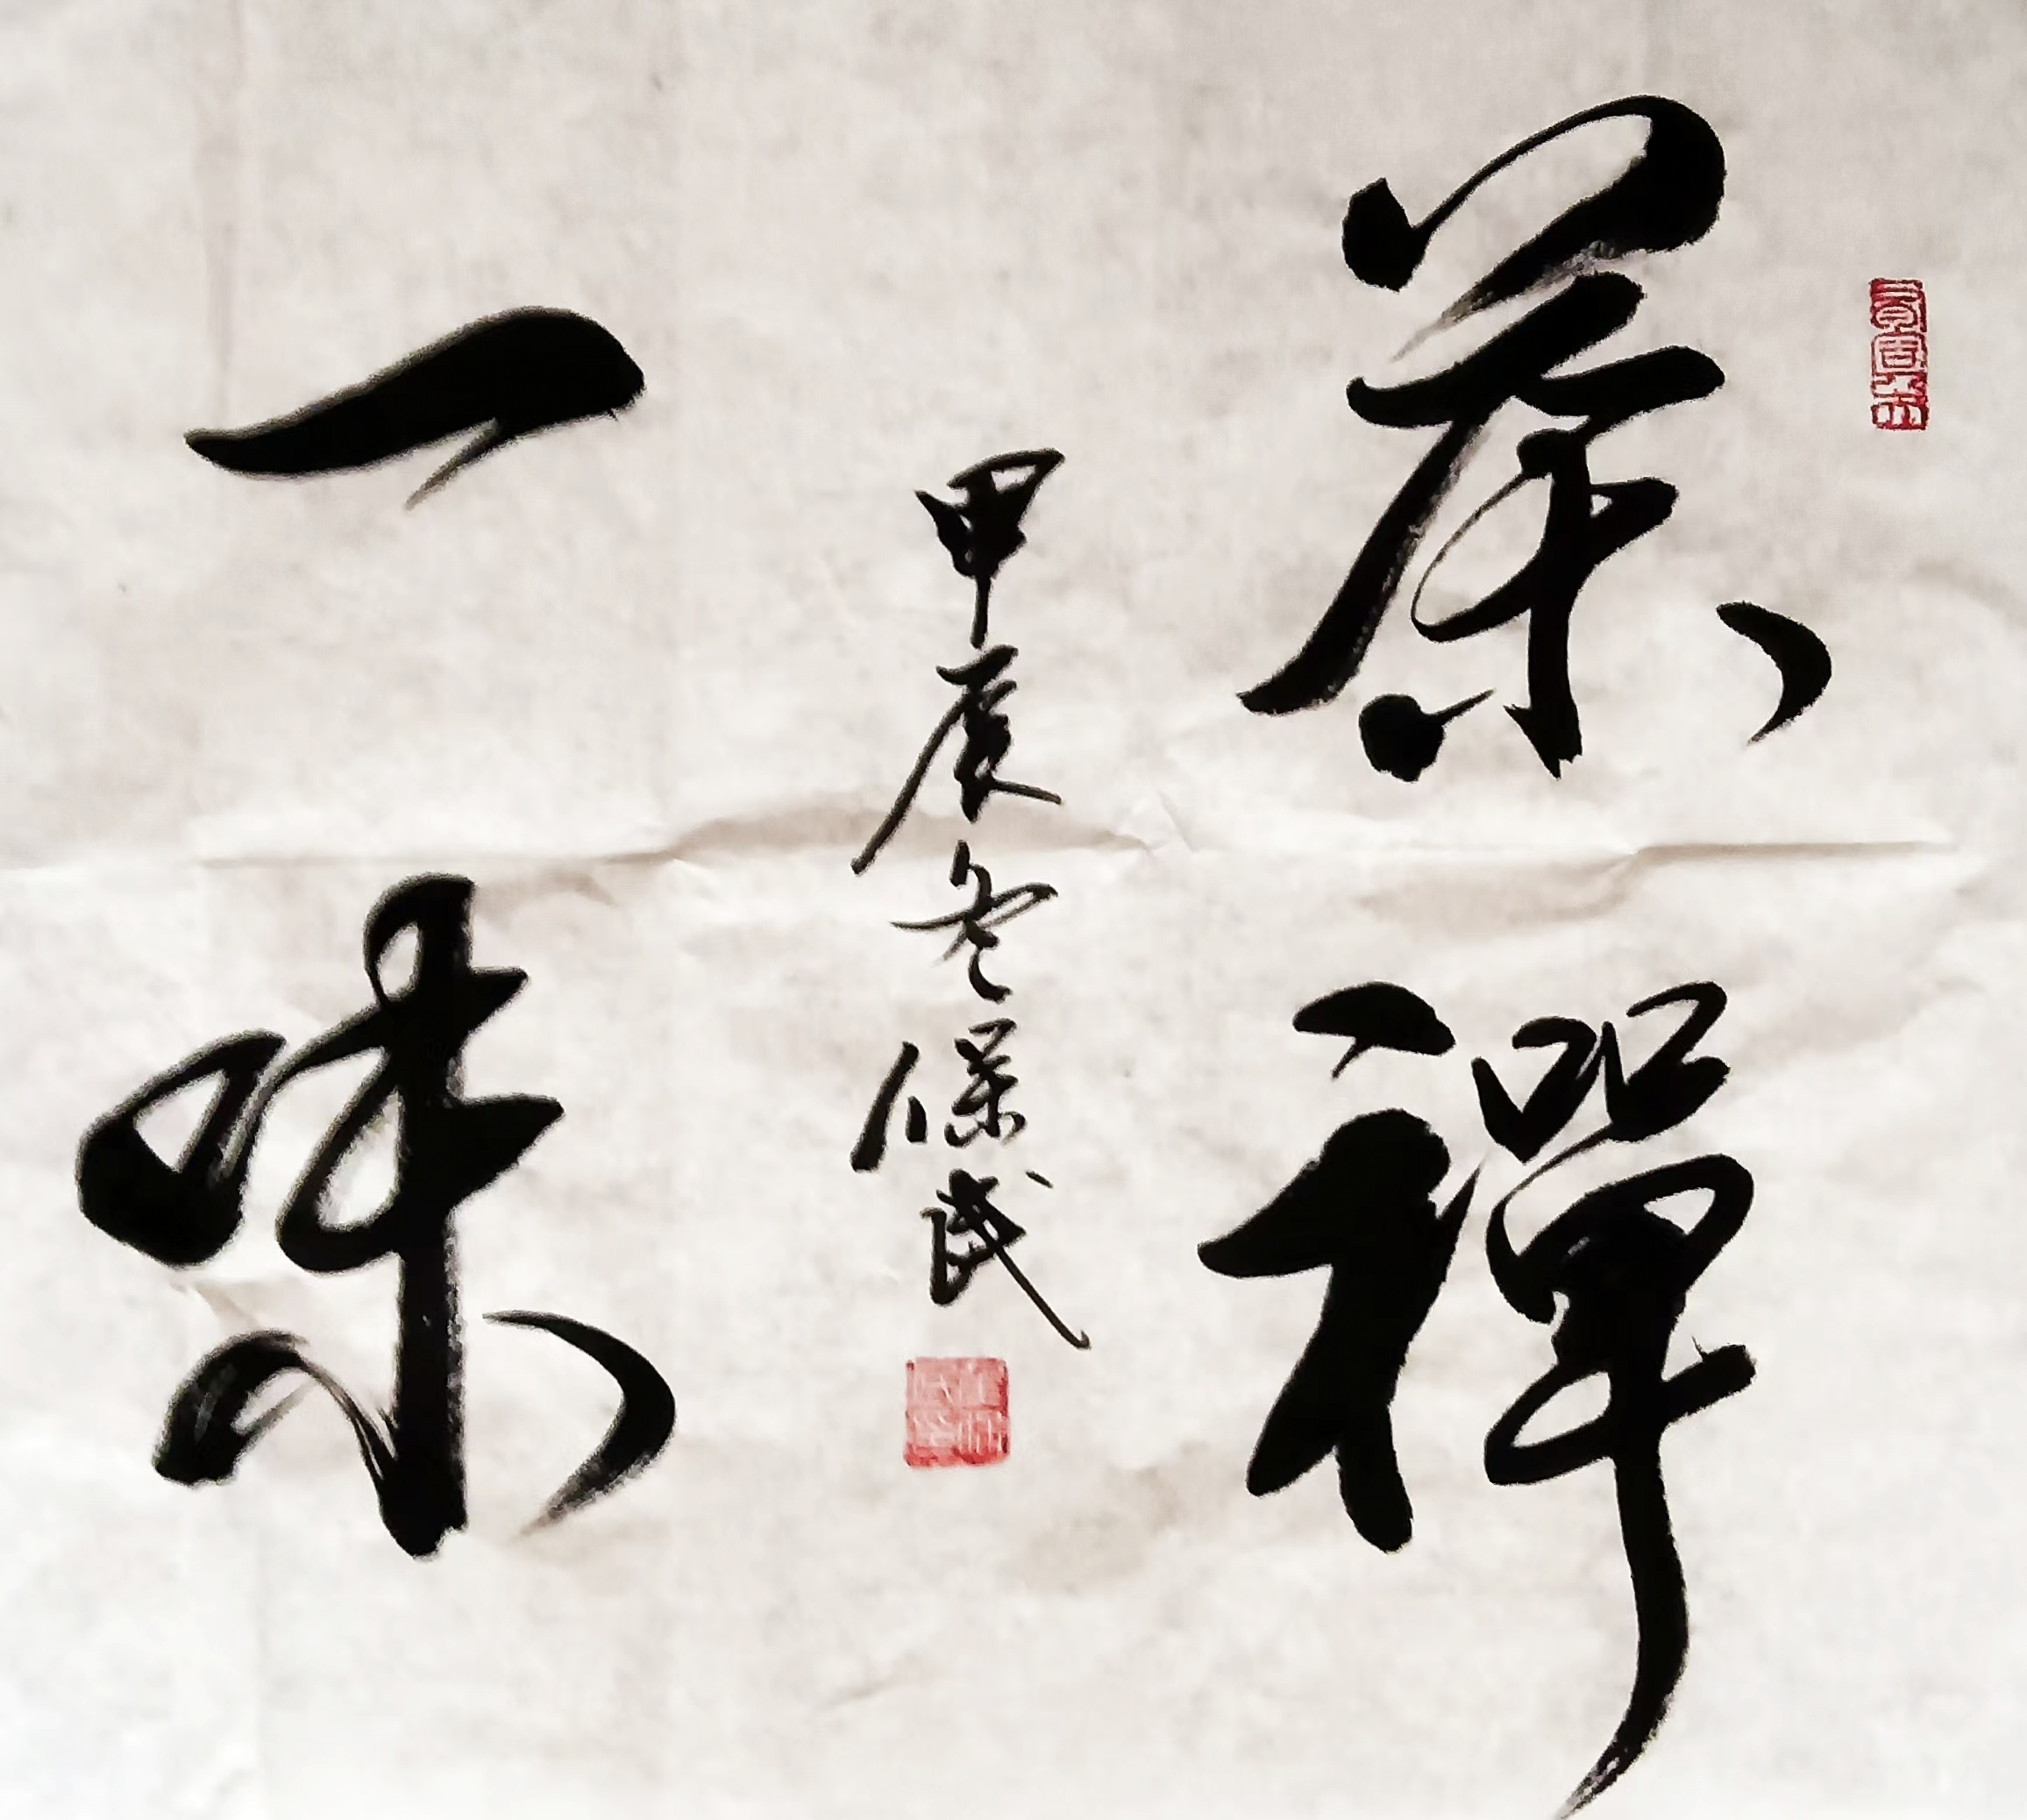 茶禪
一味
甲辰冬保民